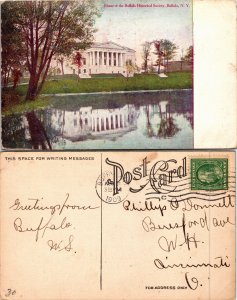 Home of the Buffalo Historical Society, Buffalo, N. Y.
THIS SPACE FOR WRITING MESSAGES
Post Card
Greetings from
Buffalo
W.S.
Phillip J Donnett
Beresford ave
W.H.
Cincinnati
O.
FOR ADDRESS ONLY
30